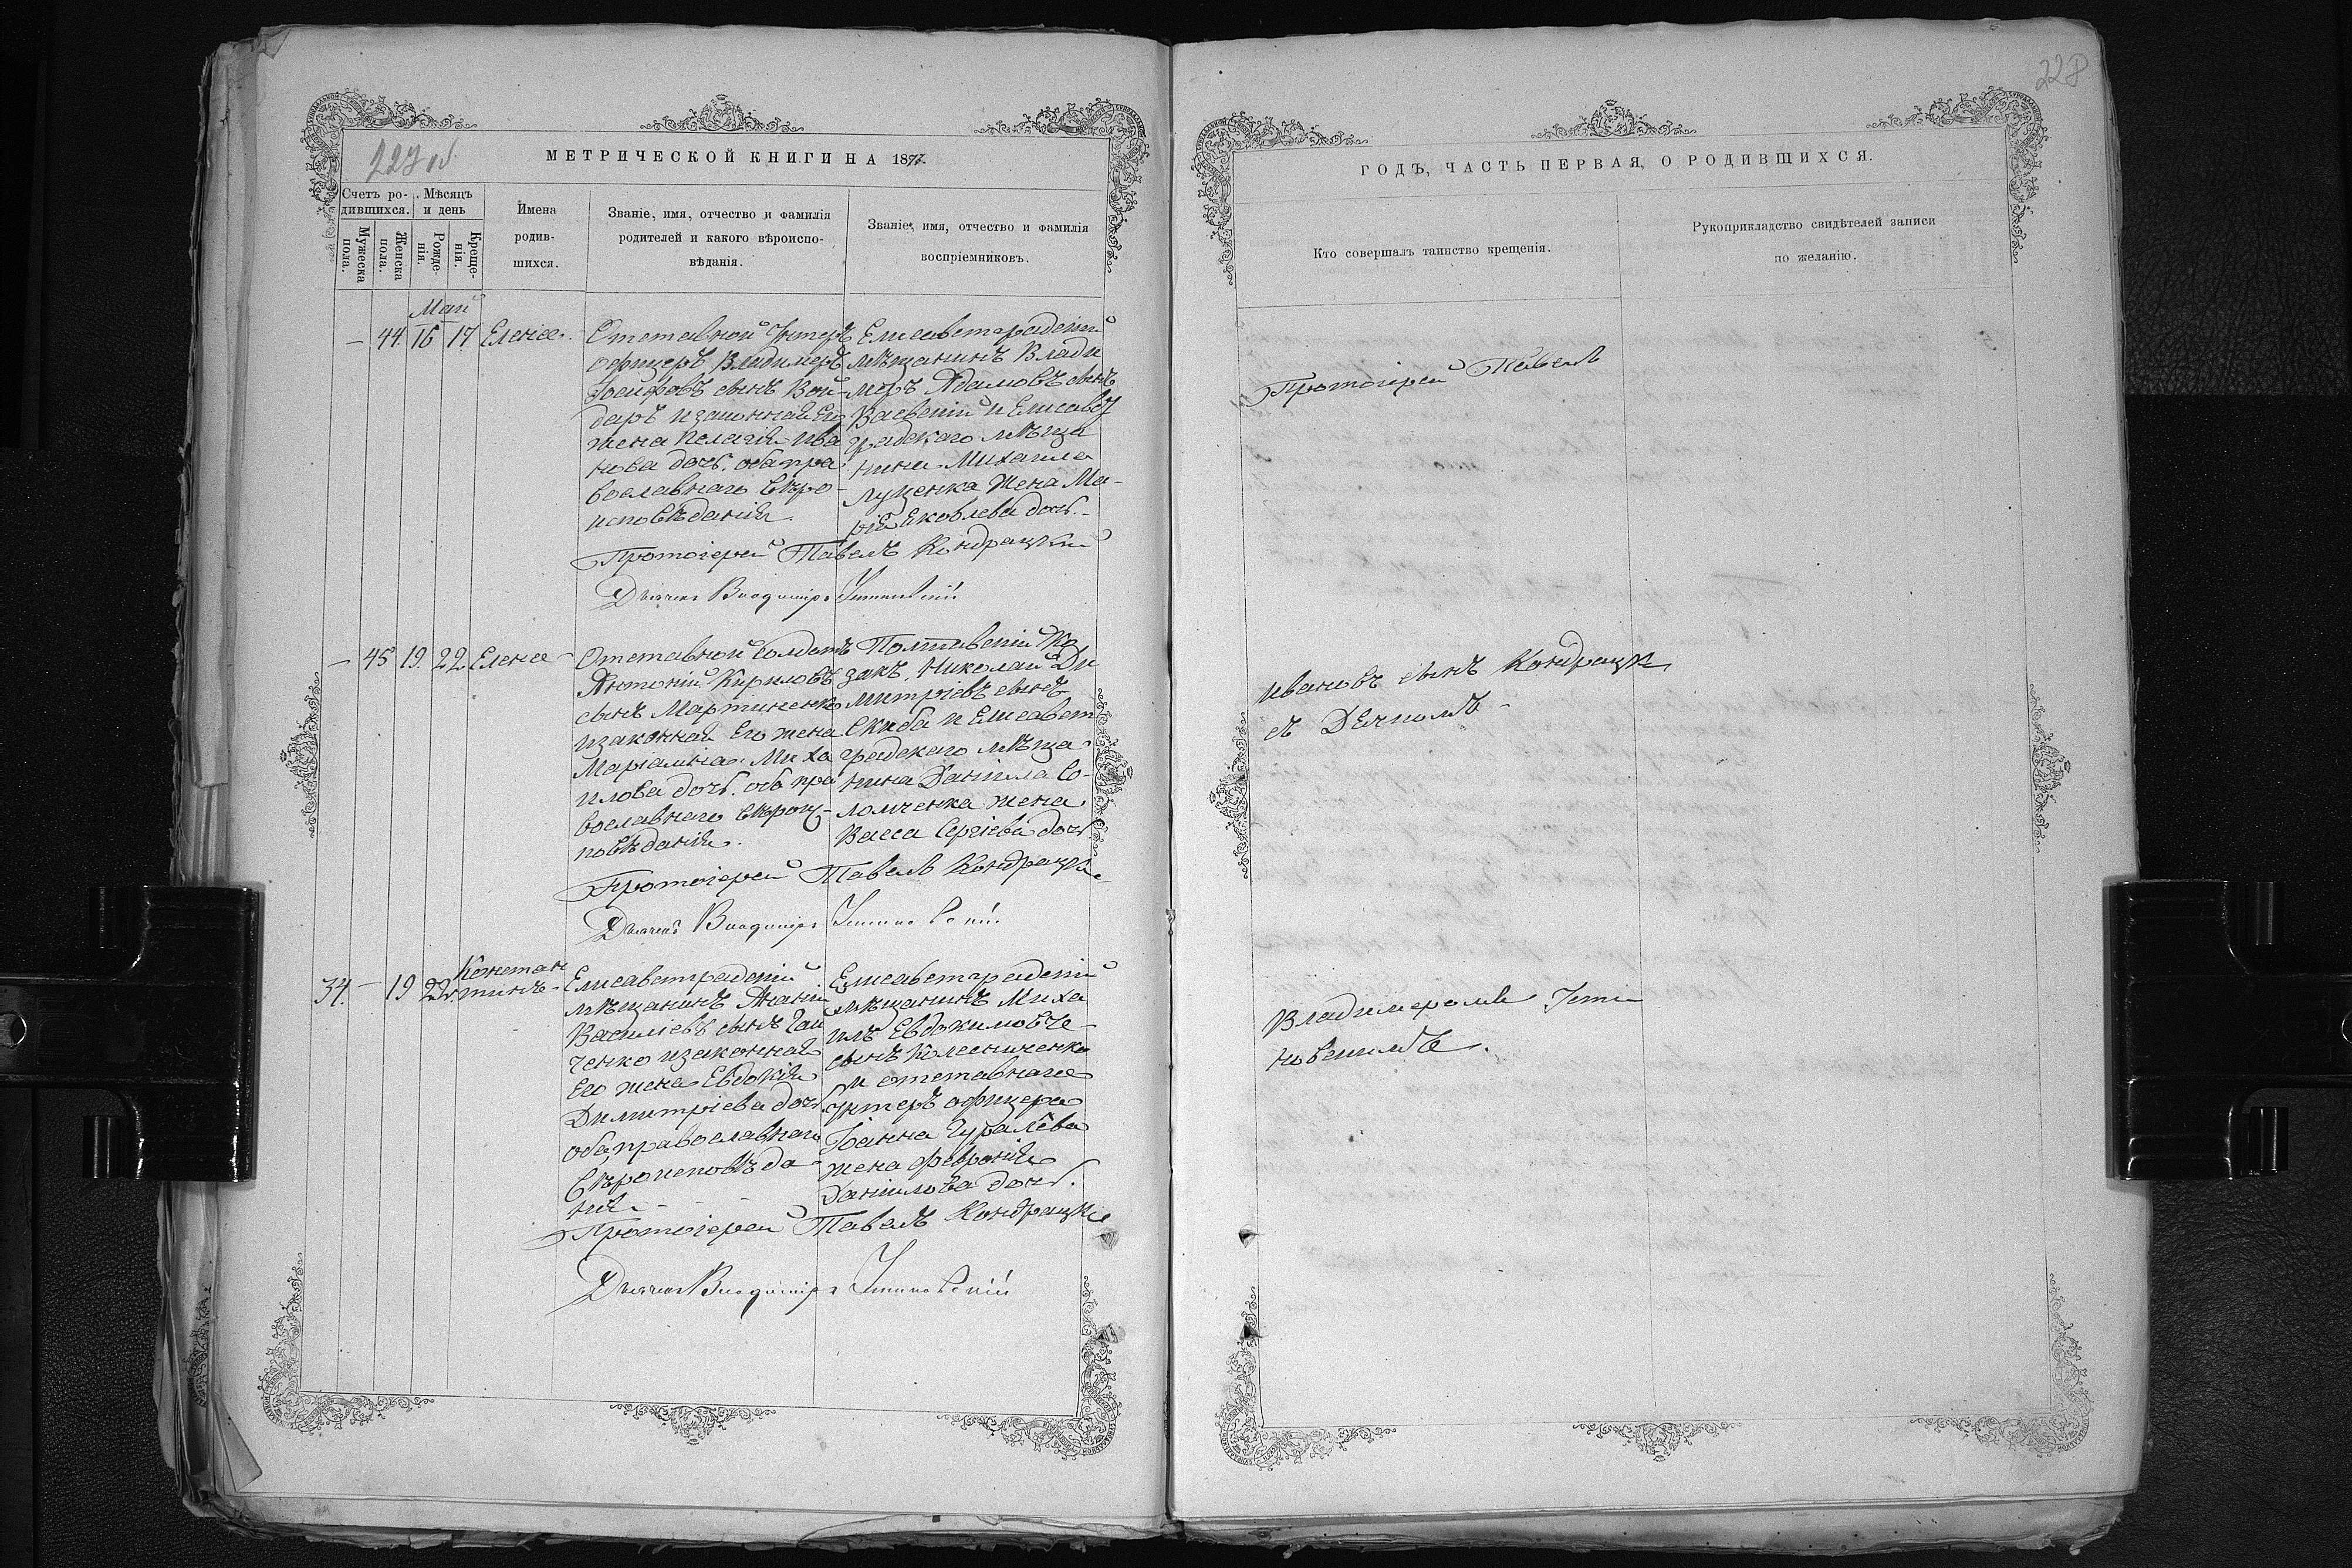 227 об.
МЕТРИЧЕСКОЙ КНИГИ НА 1877
Счетъ ро-
дившихся.
Мѣсяцъ
и день
Мужеска
пола.
Женска
пола.
Рожде-
нія.
Креще-
нія.
Имена
родив-
шихся.
Званіе, имя, отчество и фамилія
родителей и какого вѣроиспо-
вѣданія.
Званіе, имя, отчество и фамилія
воспріемниковъ.
Май
— 44. 16 17 Елена.
Отставной Унтеръ
офицеръ Владимеръ
Іосифовъ сынъ
и законная Его
жена Пелагія Ива
нова дочь. оба пра
вославнаго вѣро-
исповѣданія.
Елисаветградскій
мѣщанинъ Влади
меръ Адамовъ сынъ
и Елисавет
градскаго мѣща
нина Михаила
Луценка жена Ма-
рія Яковлева дочь.-
Протоіерей Павелъ Кондрацкій
Дьячекъ Владиміръ
— 45 19. 22 Елена
Отставной солдатъ
Антоній Кириловъ
сынъ Мартиненко
и законная Его жена
Маріамна Миха
илова дочь. оба пра
вославнаго вѣроис-
повѣданія.
Полтавскій Ко
закъ Николай Ди
митріевъ сынъ
Скиба и Елисавет
градскаго мѣща-
нина Даніила Со-
ломченка жена
Васса Сергіева дочь
Протоіерей Павелъ Кондрацкій
Дьячекъ Владиміръ
34. — 19 22. Констан
тинъ-
Елисаветградскій
мѣщанинъ Ананій
Василіевъ сынъ
ченко и законная
Его жена Евдокія
Димитріева дочь
оба православнаго
вѣроисповѣда-
нія-
Елисаветградскій
мѣщанинъ Миха
илъ Евдокимовъ
сынъ Колесниченко
и отставнаго
Унтеръ офицера
Іоанна Гуралёва
жена Февронія
Даніилова дочь.
Протоіерей Павелъ Кондрацкій
Дьячекъ Владиміръ
228
ГОДЪ, ЧАСТЬ ПЕРВАЯ, О РОДИВШИХСЯ.
Кто совершалъ таинство крещенія.
Рукоприкладство свидѣтелей записи
по желанію.
Протоіерей Павелъ
Ивановъ сынъ Кондрацкій
съ Дьячкомъ-
Владимеромъ Усти
новскимъ.